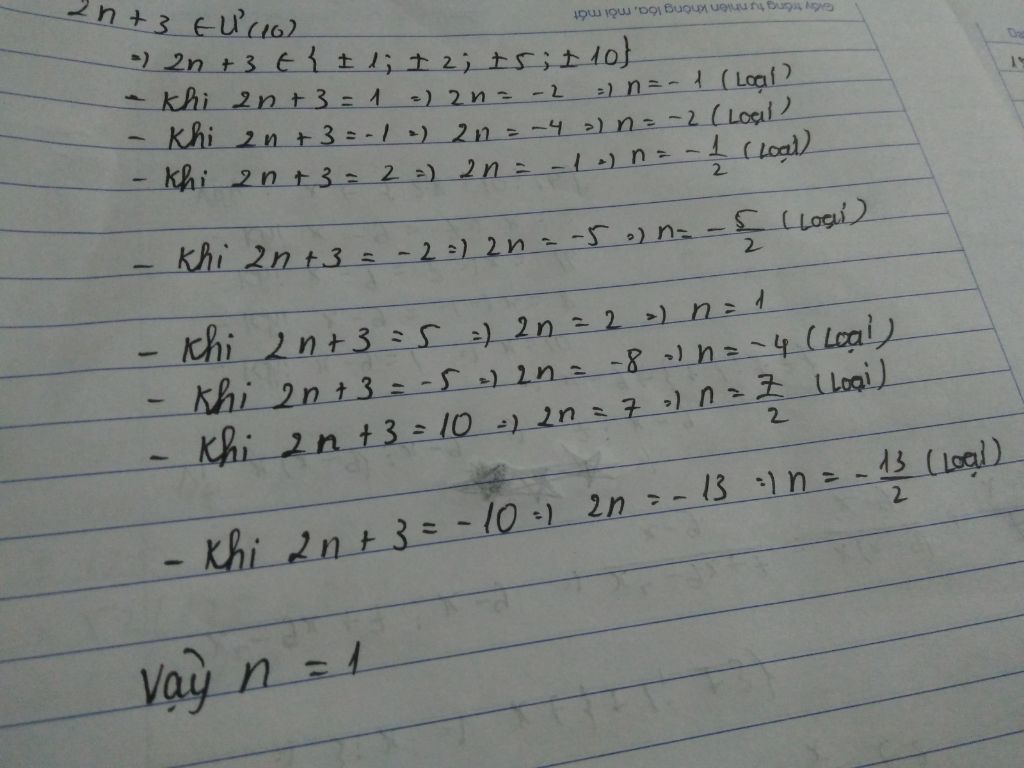 Giấy trắng tự nhiên không lóa, mỏi mắt
2n + 3 ∈ Ư(10)
=) 2n + 3 ∈ { ± 1; ± 2; ±5; ± 10}
- Khi 2n + 3 = 1 =) 2n = -2 =) n = - 1 (Loại)
- Khi 2n + 3 = -1 =) 2n = -4 =) n = -2 (Loại)
- Khi 2n + 3 = 2 =) 2n = -1 =) n = - 1/2 (Loại)
- Khi 2n + 3 = -2 =) 2n = -5 =) n = - 5/2 (Loại)
- Khi 2n + 3 = 5 =) 2n = 2 =) n = 1
- Khi 2n + 3 = -5 =) 2n = -8 =) n = -4 (Loại)
- Khi 2n + 3 = 10 =) 2n = 7 =) n = 7/2 (Loại)
- Khi 2n + 3 = -10 =) 2n = - 13 =) n = - 13/2 (Loại)
Vậy n = 1